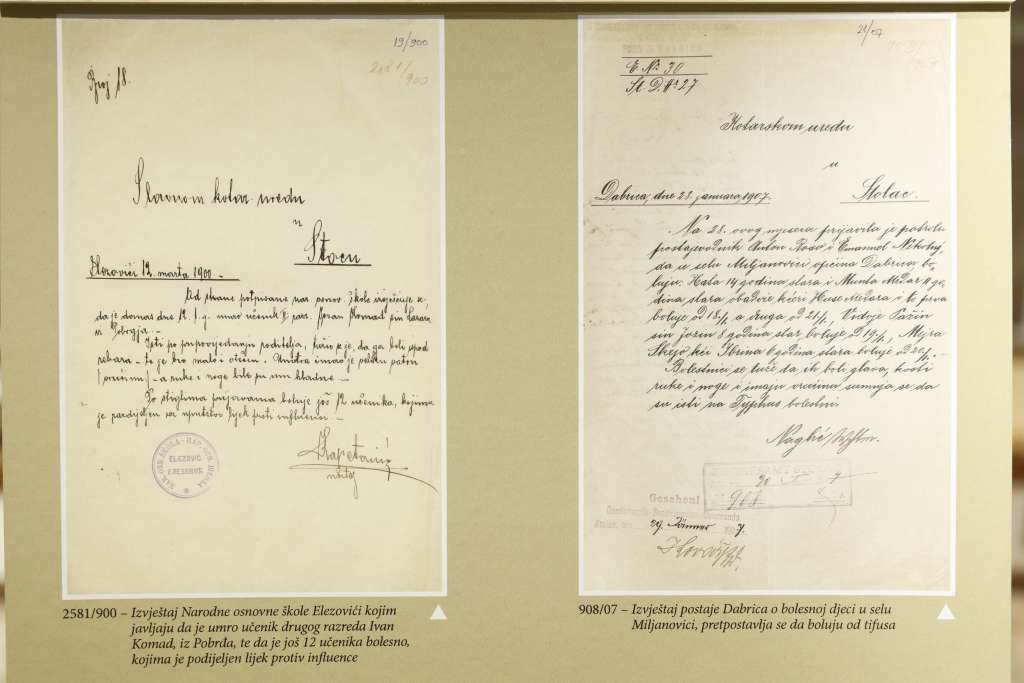 19/900
Broj 18.
Slavnom kotar. uredu
u
Stocu
Elezovići 12. marta 1900
Od strane potpisane nar. osnov. škole izvješćuje se
da je danas dne 12. t. g. umro učenik II raz. Ivan Komad sin
Isti po pripovjedanju roditelja, tužio se je, da ga boli ispod
rebara – te je bio malo i otečen. Unutra imao je
– a ruke i noge bile su mu hladne –
boluje još 12 učenika, kojima
je podijeljen lijek proti influenci –
NAR. OSN. ŠKOLA
ELEZOVIĆ
2581/900 – Izvještaj Narodne osnovne škole Elezovići kojim
javljaju da je umro učenik drugog razreda Ivan
Komad, iz Pobrđa, te da je još 12 učenika bolesno,
kojima je podijeljen lijek protiv influence
E. No 30
St. D. No 27
Kotarskom uredu
u
Dabrica, dne 28. januara 1907.
Stolac.
Na 28. ovog mjeseca prijavila je patrola
postajevodnik Anton Roso i Emanuel
da u selu Miljanovici općina Dabrica bo-
luju: Hata 14 godina stara i Munta Medar 4 go-
dina stara obadvje kćeri Huse Medara i to prva
boluje od 18/1 a druga od 21/1, Vidoje Pažin
sin Jozin 8 godina star boluje od 19/1, Mejra
Škegó kći Ibrina 8 godina stara boluje od 20/1. –
Bolestnici se tuže da ih boli glava, kosti
ruke i noge i imaju vrućinu sumnja se da
su isti na Typhus bolestni.
908
Gesehen!
29. Jänner 1907.
908/07 – Izvještaj postaje Dabrica o bolesnoj djeci u selu
Miljanovici, pretpostavlja se da boluju od tifusa